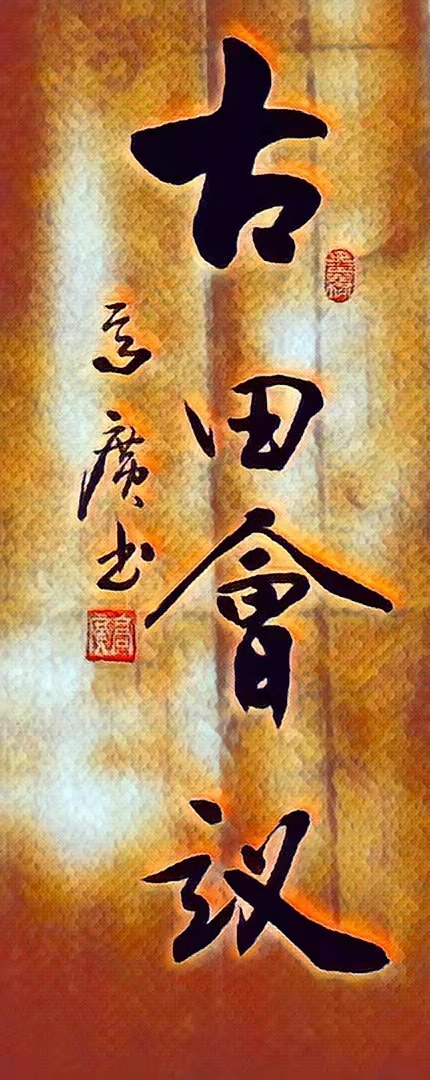 古田會议
高廣书